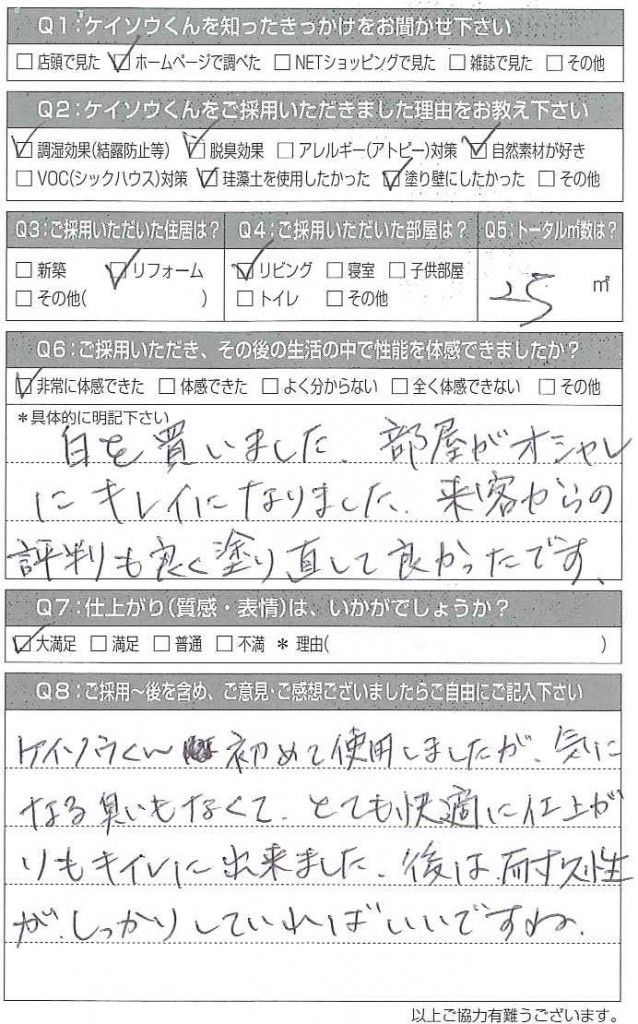 Q1:ケイソウくんを知ったきっかけをお聞かせ下さい
□店頭で見た ☑ホームページで調べた □NETショッピングで見た □雑誌で見た □その他
Q2:ケイソウくんをご採用いただきました理由をお教え下さい
☑調湿効果(結露防止等) ☑脱臭効果 □アレルギー(アトピー)対策 ☑自然素材が好き
□VOC(シックハウス)対策 ☑珪藻土を使用したかった ☑塗り壁にしたかった □その他
Q3:ご採用いただいた住居は? Q4:ご採用いただいた部屋は? Q5:トータル㎡数は?
□新築 ☑リフォーム ☑リビング □寝室 □子供部屋 25 ㎡
□その他( ) □トイレ □その他
Q6:ご採用いただき、その後の生活の中で性能を体感できましたか?
☑非常に体感できた □体感できた □よく分からない □全く体感できない □その他
*具体的に明記下さい
白を買いました、部屋がオシャレ
にキレイになりました、来客からの
評判も良く塗り直して良かったです、
Q7:仕上がり(質感・表情)は、いかがでしょうか?
☑大満足 □満足 □普通 □不満 *理由( )
Q8:ご採用〜後を含め、ご意見・ご感想ございましたらご自由にご記入下さい
ケイソウくん 初めて使用しましたが、気に
なる臭いもなくて、とても快適に仕上が
りもキイレに出来ました、後は、耐久性
が、しっかりしていればいいですね、
以上ご協力有難うございます。